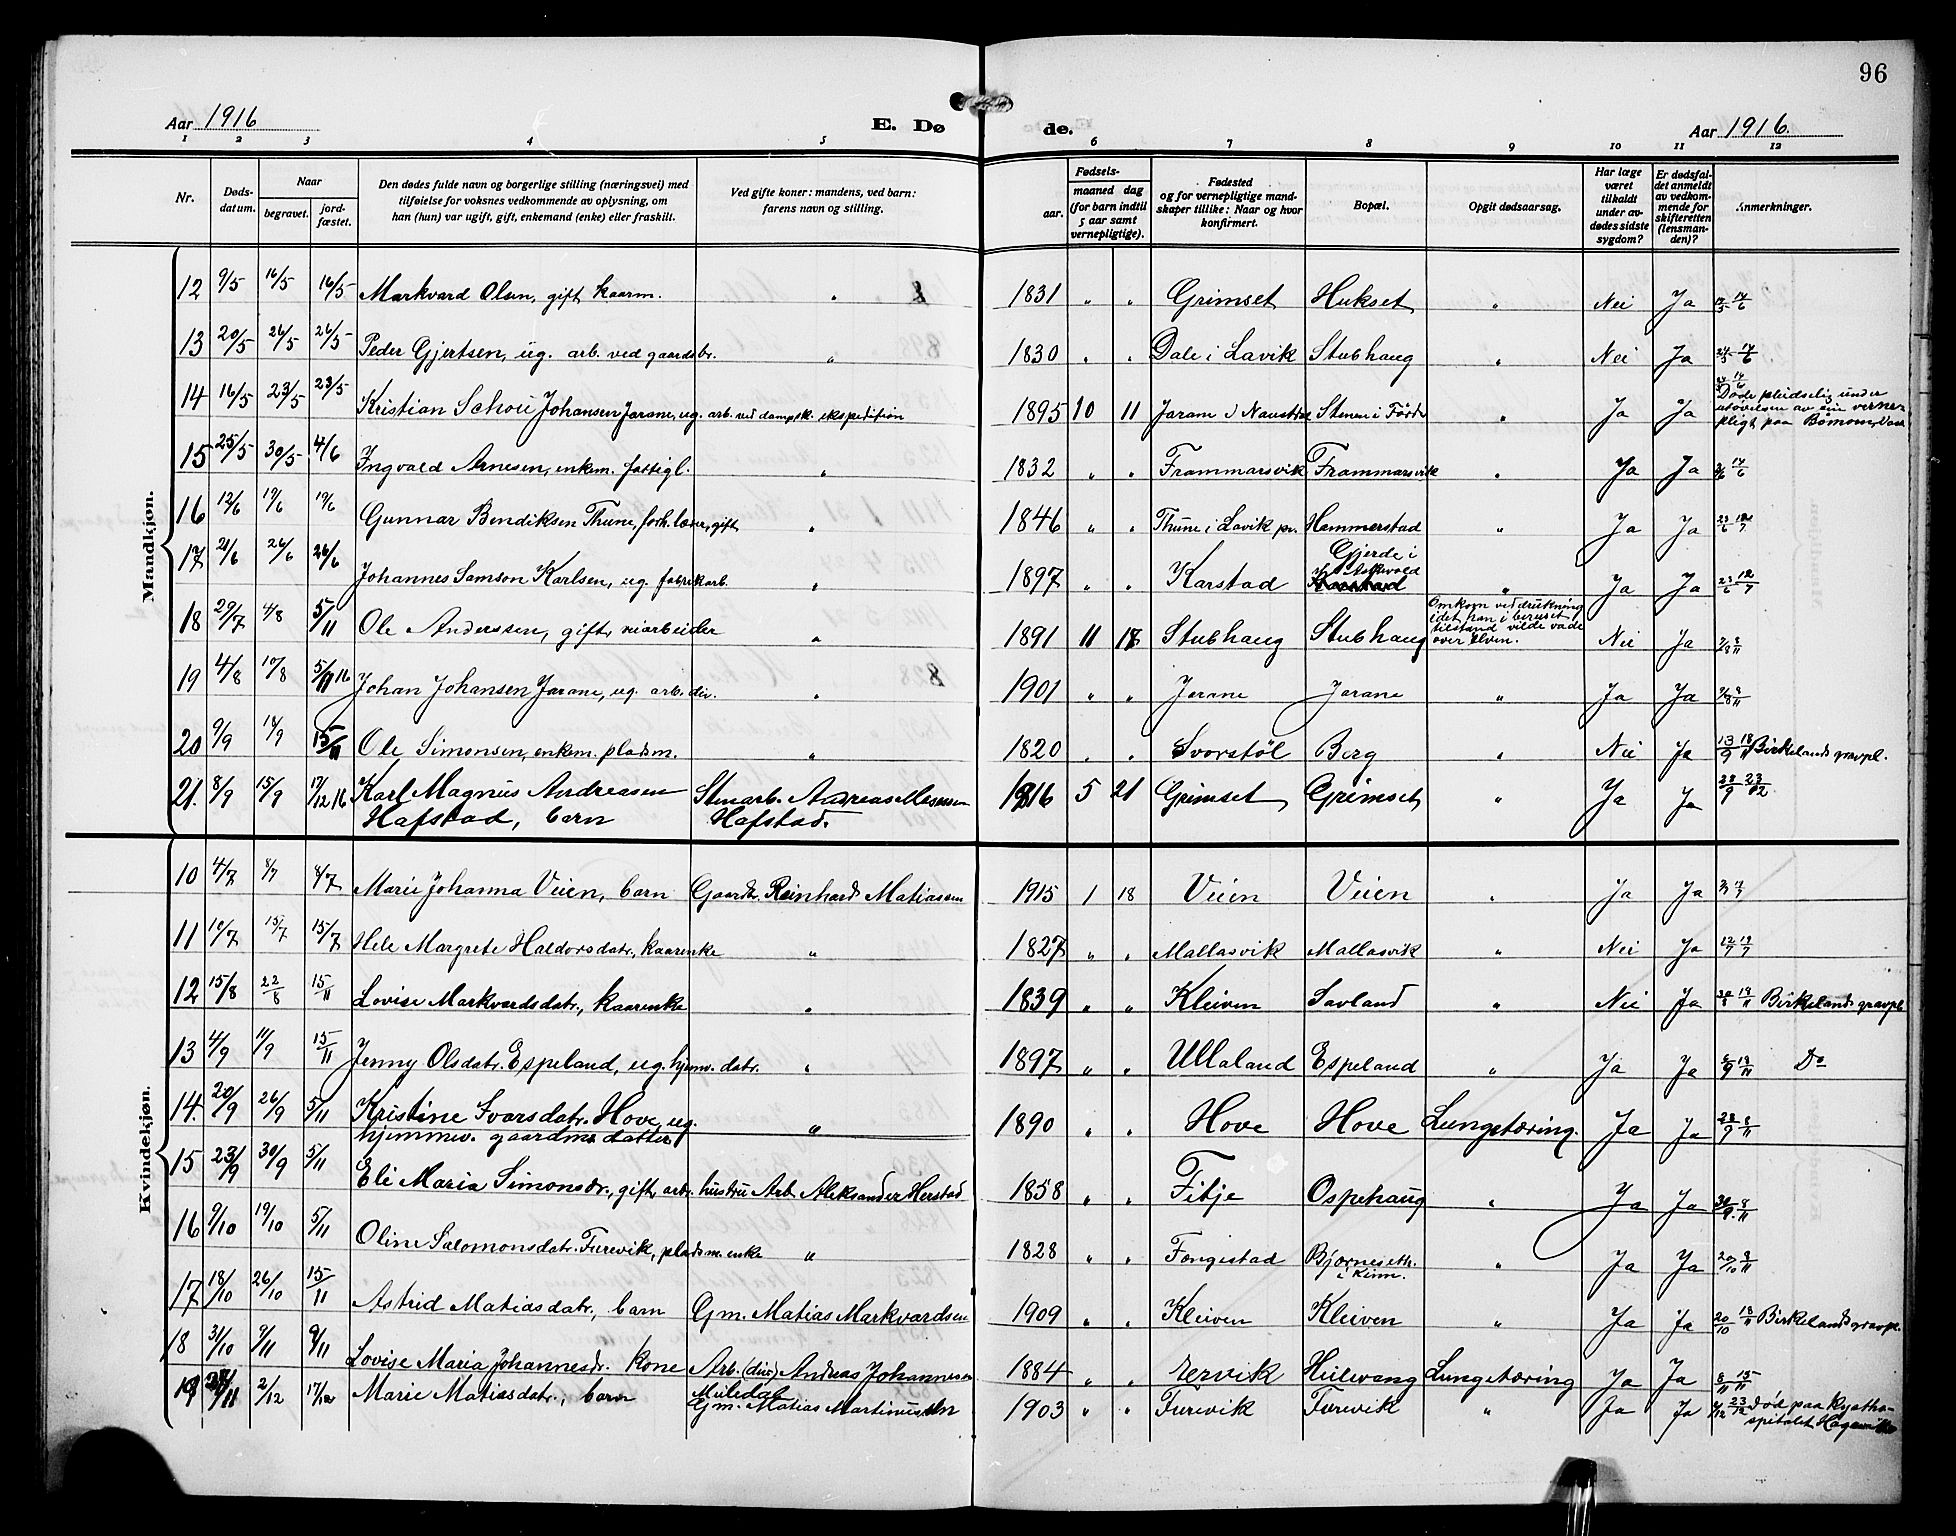 96
Aar 1916
E. Dø
de.
Aar 1916.
1 2 3 4 5 6 7 8 9 10 11 12
Nr.
Døds-
datum.
Naar
begravet.
jord-
fæstet.
Den dødes fulde navn og borgerlige stilling (næringsvei) med
tilføielse for voksnes vedkommende av oplysning, om
han (hun) var ugift, gift, enkemand (enke) eller fraskilt.
Ved gifte koner: mandens, ved barn:
farens navn og stilling.
Fødsels-
aar.
maaned dag
(for barn indtil
5 aar samt
vernepligtige).
Fødested
og for vernepligtige mand-
skaper tillike: Naar og hvor
konfirmert.
Bopæl.
Opgit dødsaarsag.
Har læge
været
tilkaldt
under av-
dødes sidste
sygdom?
Er dødsfal-
det anmeldt
av vedkom-
mende for
skifteretten
(lensman-
den)?
Anmerkninger.
Mandkjøn.
12 9/5 16/5 16/5 Markvard Olsen, gift kaarm. " 1831 " " Grimset Hukset " Nei Ja 14/6
13 20/5 26/5 26/5 Peder Gjertsen, ug. arb. ved gaardsbr. " 1830 " " Dale i Lavik Stubhaug " Nei Ja 24/5 14/6
14 16/5 23/5 23/5 Kristian Schou Johansen Jarane, ug. arb. ved dampsk. ekspedition 1895 10 11 Jarane i Naustdal Stenen i Førde " Ja Ja 14/6
Døde pleidselig under
utøvelsen av sin verne-
pligt paa Bømoen, Voss
15 25/5 30/5 4/6 Ingvald Arnesen, enkem. fattigl. " 1832 " " Frammarsvik Frammarsvik " Ja Ja 2/6 14/6
16 12/6 19/6 19/6 Gunnar Bendiksen Thune, forh. lærer, gift " 1846 " " Thune i Lavik pr. Hammerstad " Ja Ja 23/6 12/7
17 21/6 26/6 26/6 Johannes Samson Karlsen, ug. fabrikarb. " 1897 " " Karstad Gjerde i
Askvold
Karstad " Ja Ja 23/6 12/7
18 29/7 4/8 5/11 Ole Anderssen, gift, veiarbeider " 1891 11 18 Stubhaug Stubhaug Omkom ved drukning
idet han i beruset
tilstand vilde vade
over elven. Nei Ja 7/8 8/11
19 4/8 10/8 5/11 16 Johan Johansen Jarane, ug. arb. div. " 1901 " " Jarane Jarane " Ja Ja 9/8 8/11
20 9/9 18/9 15/11 Ole Simonsen, enkem. pladsm. " 1820 " " Svorstøl Berg " Nei Ja 13/9 18/11 Birkelands gravpl.
21. 8/9 15/9 17/12 16 Karl Magnus Andreasen Stenarb. Andreas Mosessen 1916 5 21 Grimset Grimset " Ja Ja 28/9 23/12
Hafstad, barn Hafstad.
Kvindekjøn.
10 4/7 8/7 8/7 Marie Johanna Veien, barn Gaardbr. Reinhard Matiassen 1915 1 18 Veien Veien " Ja Ja
11 10/7 15/7 15/7 Hele Margrete Haldorsdatr., kaarenke " 1827 " " Mallasvik Mallasvik " Nei Ja 12/7 19/7
12 15/8 22/8 15/11 Lovise Markvardsdatr., kaarenke " 1839 " " Kleiven Savland " Nei Ja 30/8 18/11 Birkelands gravpl.
13 4/9 11/9 15/11 Jenny Olsdatr. Espeland, ug. hjmv. datr. " 1897 " " Ullaland Espeland " Ja Ja 8/9 18/11 Do
14. 20/9 26/9 5/11 Kristine Ivarsdatr. Hove, ug. " 1890 " " Hove Hove Lungetæring. Ja Ja 28/9 8/11
hjemmev. gaardms datter
15 23/9 30/9 5/11 Eli Maria Simonsdr., gift, arb. hustru Arb. Aleksander Herstad 1858 " " Fitje Ospehaug " Ja Ja 30/9. 8/11
16 9/10 19/10 5/11 Oline Salomonsdatr. Furevik, pladsm. enke " 1828 " " Fængestad Bjørneseth.
i Kinn. " Ja Ja 20/10 8/11
17 18/10 26/10 15/11 Astrid Matiasdatr., barn Gm. Matias Markvardsen 1909 " " Kleiven Kleiven " Ja Ja 20/10 18/11 Birkelands gravpl.
18 31/10 9/11 9/11 Lovise Maria Johannesdr. kone Arb. (div.) Andreas Johannesen 1884 " " Ervik Heilevang Lungetæring Ja Ja 8/11 15/11
Miledal
19 2/12 17/12 Marie Matiasdatr., barn Gm. Matias Martinussen 1903 " " Furevik Furevik " Ja Ja 4/12 23/12 død paa Kysthos-
spitalet Hagavik